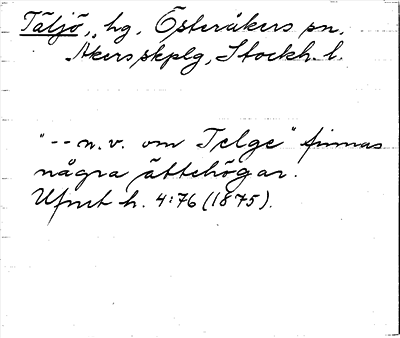 Täljö, hg, Österåkers sn,
Åkers skplg, Stockh. l.
"-- n. v. om Telge" finnas
några ättehögar.
Ufmt h. 4:76 (1875).